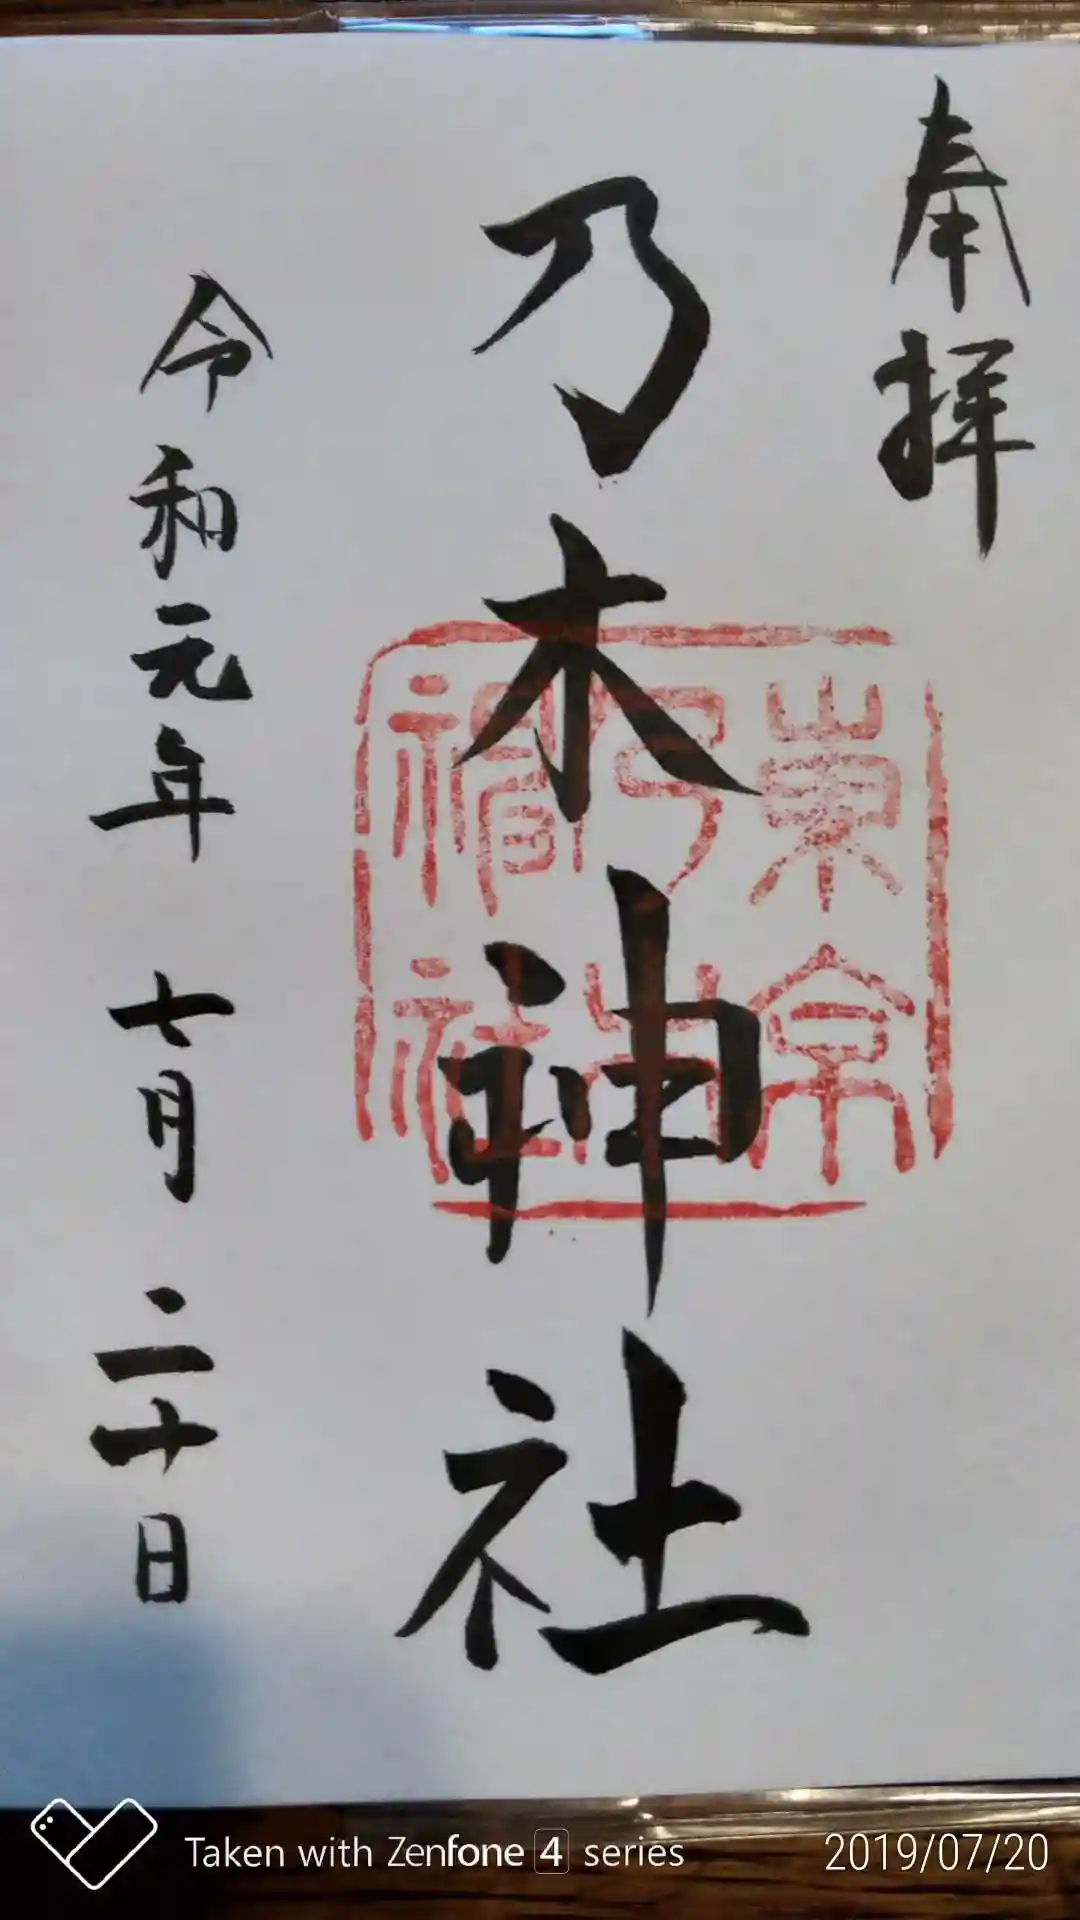 奉拝
乃木神社
東京
乃木
神社
令和元年 七月 二十日
Taken with Zenfone 4 series
2019/07/20